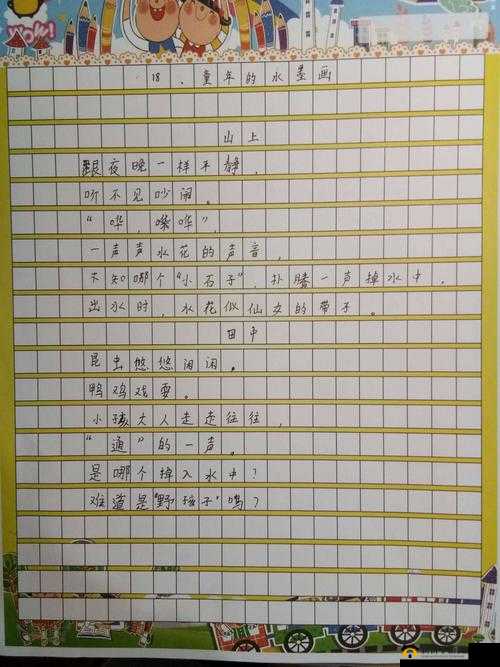 18、童年的水墨画
山上
跟夜晚一样平静,
听不见吵闹。
“哗,嗓哗”,
一声声水花的声音,
不知哪个“小石子”,扑腾一声掉水中,
出水时,水花似仙女的带子。
田中
昆虫悠悠闲闲。
鸭鸡戏耍。
小孩大人走走往往,
“通”的一声。
是哪个掉入水中?
难道是“野孩子”吗?